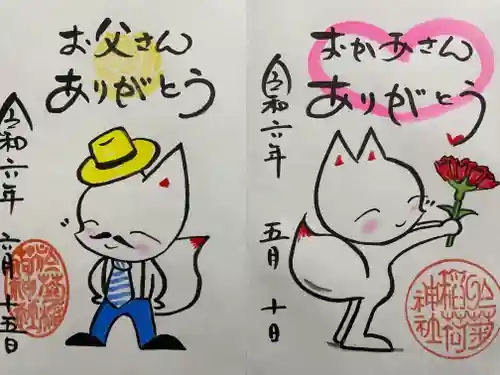 お父さん
ありがとう
令和六年 六月十五日
おかあさん
ありがとう
令和六年
五月
十日
稲荷
神社